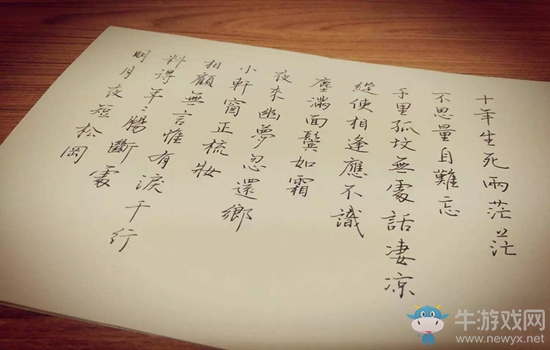 十年生死兩茫茫
不思量自難忘
千里孤坟無處話凄凉
縱使相逢應不識
塵滿面鬢如霜
夜來幽夢忽還鄉
小軒窗正梳妝
相顧無言惟有淚千行
料得年〻腸斷處
明月夜短松岡
牛游戏网
www.newyx.net